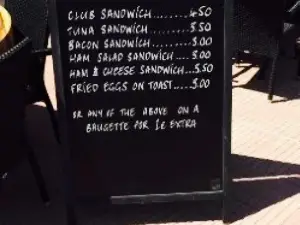 CLUB SANDWICH........4.50
TUNA SANDWICH........5.50
BACON SANDWICH......5.00
HAM SALAD SANDWICH....5.00
HAM & CHEESE SANDWICH...5.50
FRIED EGGS ON TOAST.....5.00
OR ANY OF THE ABOVE ON A
BAUGETTE FOR 1€ EXTRA